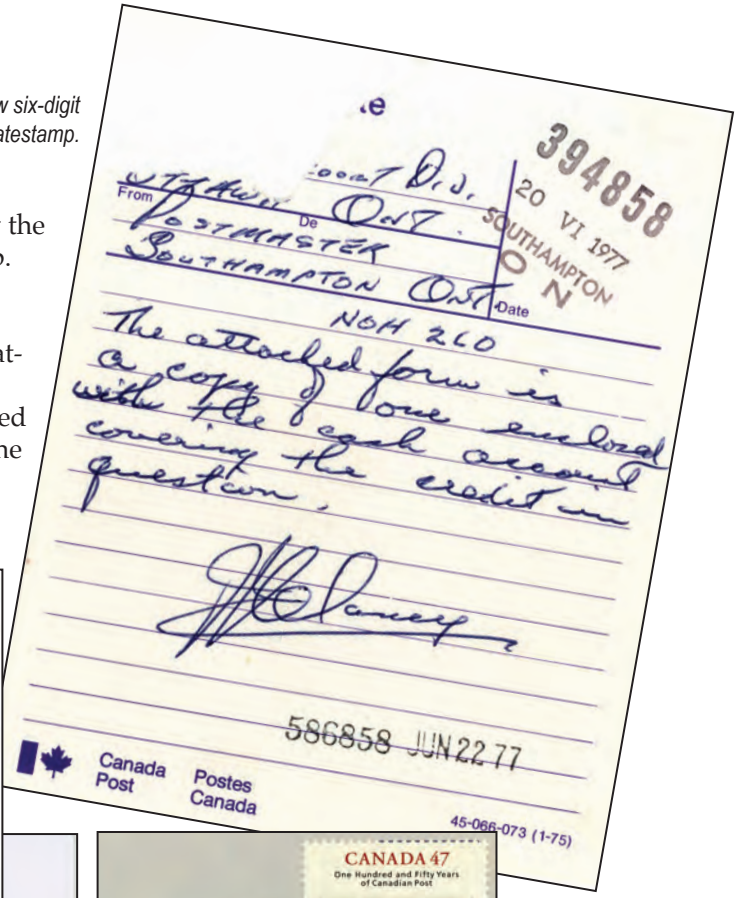 w six-digit
atestamp.
the
o.
at-
ed
ne
.e
394858
20 VI 1977
SOUTHAMPTON
O N
D.J.
OTTAWA ONT.
From De
POSTMASTER
SOUTHAMPTON ONT.
Date
NOH 2L0
The attached form is
a copy of one enclosed
with the cash account
covering the credit in
question.
586858 JUN 22 77
Canada Postes
Post Canada
45-066-073 (1-75)
CANADA 47
One Hundred and Fifty Years
of Canadian Post